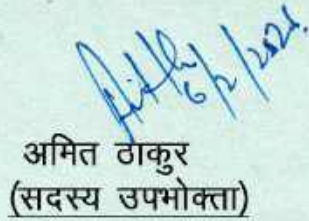 6/2/2026.
अमित ठाकुर
(सदस्य उपभोक्ता)